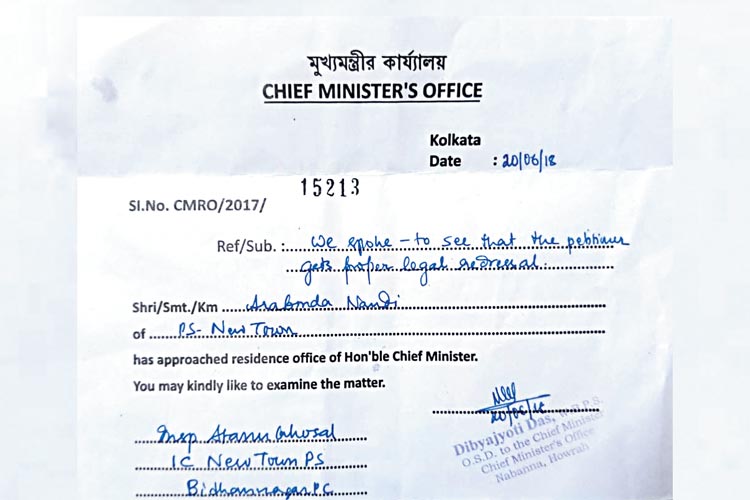 মুখ্যমন্ত্রীর কার্য্যালয়
CHIEF MINISTER'S OFFICE
Kolkata
Date : 20/06/18
15213
Sl.No. CMRO/2017/
Ref/Sub. : We spoke – to see that the petitioner
gets proper legal redressal.
Shri/Smt./Km Arabinda Nandi
of P.S- New Town
has approached residence office of Hon'ble Chief Minister.
You may kindly like to examine the matter.
20/06/18
Dibyajyoti Das, W.B.P.S.
O.S.D. to the Chief Minister
Chief Minister's Office
Nabanna, Howrah
Insp Atanu Ghosal
IC New Town PS
Bidhannagar P.C.